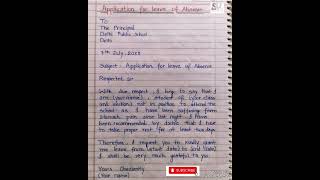 Application for leave of Absence
To
The Principal
Delhi Public School
Delhi
7th July, 2023
Subject : Application for leave of Absence
Respected sir
With due respect, I beg to say that I
am (your name), student of (your class
and section) not in position to attend the
school as I have been suffering from
Stomach pain since last night. I have
been recommended by doctor that I have
to take proper rest for at least two days.
Therefore, I request you to kindly grant
me leave from (start date) to (end date)
I shall be very much grateful to you
Yours Obediently
(Your name)
SUBSCRIBE